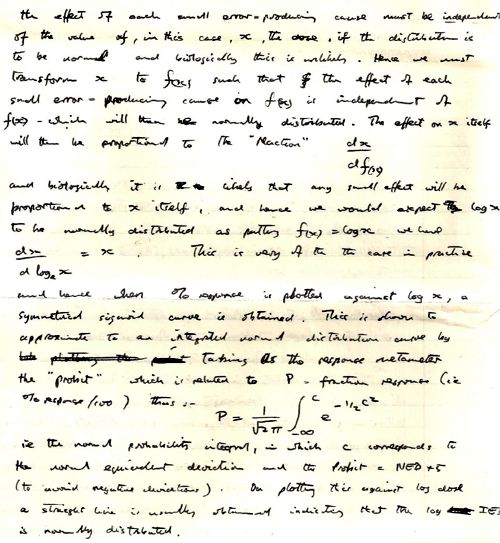 the effect of each small error-producing cause must be independent
of the value of, in this case, x, the dose, if the distribution is
to be normal and biologically this is unlikely. Hence we must
transform x to f(x) such that the effect of each
small error-producing cause on f(x) is independent of
f(x) - which will then be normally distributed. The effect on x itself
will then be proportional to the "reaction" dx
df(x)
and biologically it is likely that any small effect will be
proportional to x itself, and hence we would expect log x
to be normally distributed as putting f(x) = log x we have
dx = x. This is very often the case in practice
d logₑ x
and hence when % response is plotted against log x, a
symmetrical sigmoid curve is obtained. This is shown to
approximate to an integrated normal distribution curve by
plotting the taking as the response metameter
the "probit" which is related to P - fraction response (ie
% response/100) thus :-
P = 1/√2π ∫ c -∞ e -½c²
ie the normal probability integral, in which c corresponds to
the normal equivalent deviation and the Probit = NED + 5
(to avoid negative deviations). On plotting this against log dose
a straight line is usually obtained indicating that the log IE
is normally distributed.